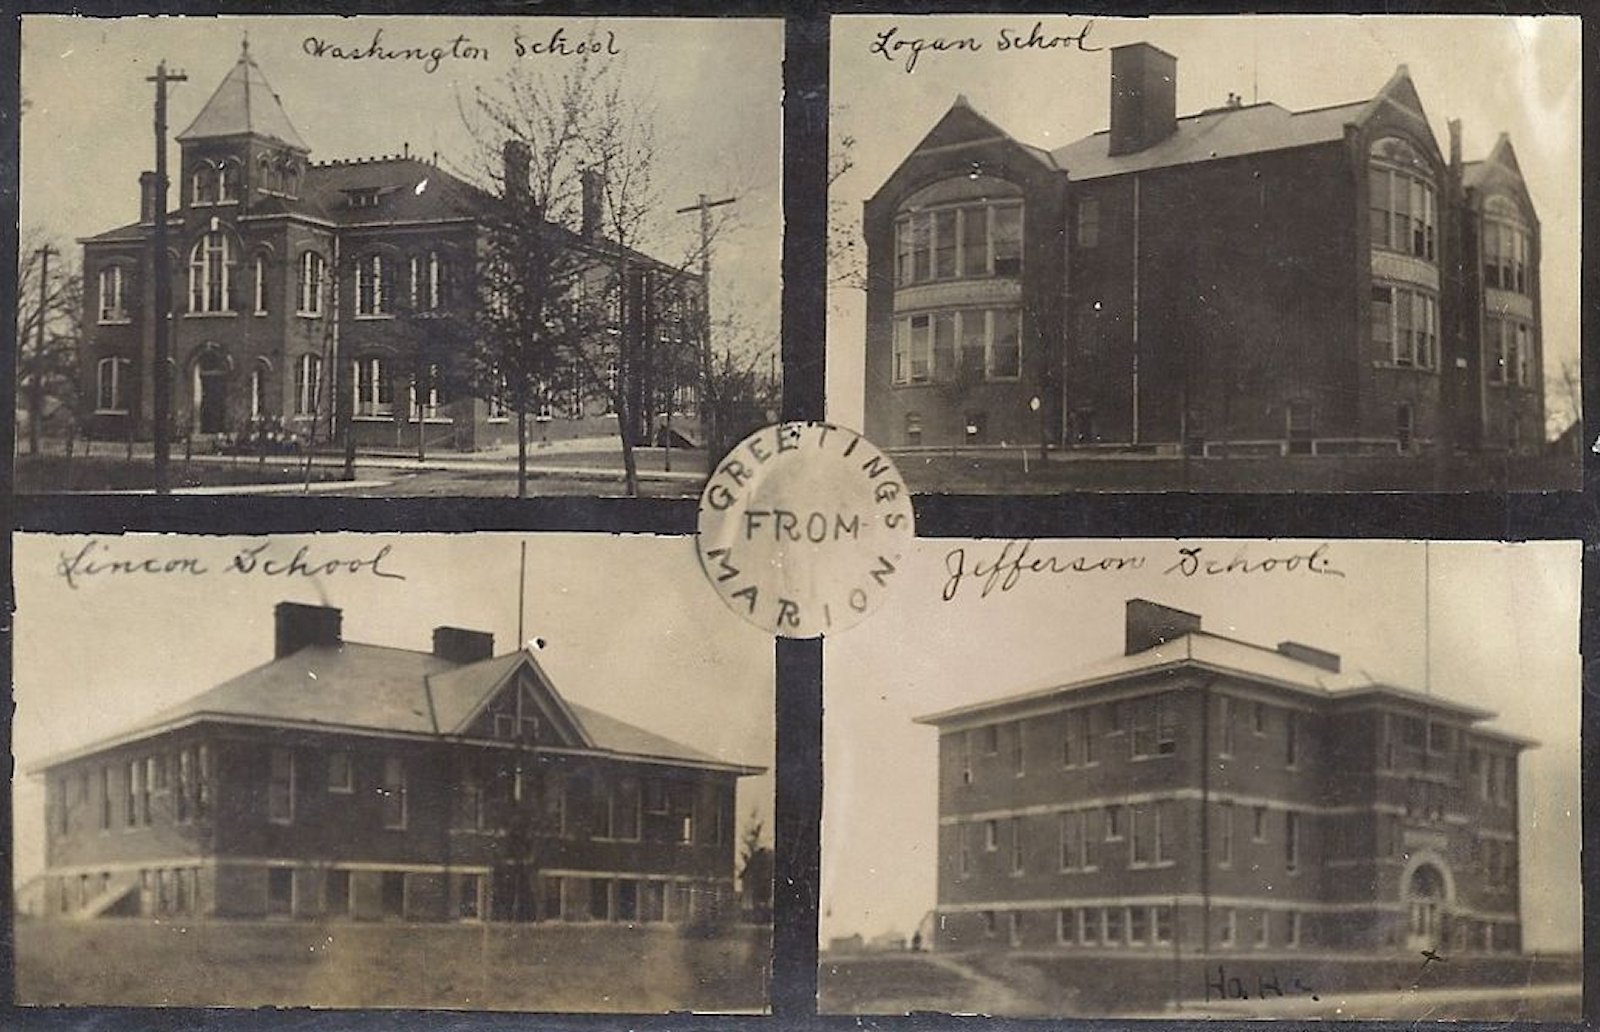 Washington School
Logan School
GREETINGS
FROM
MARION
Lincon School
Jefferson School.
Ha. Ha.